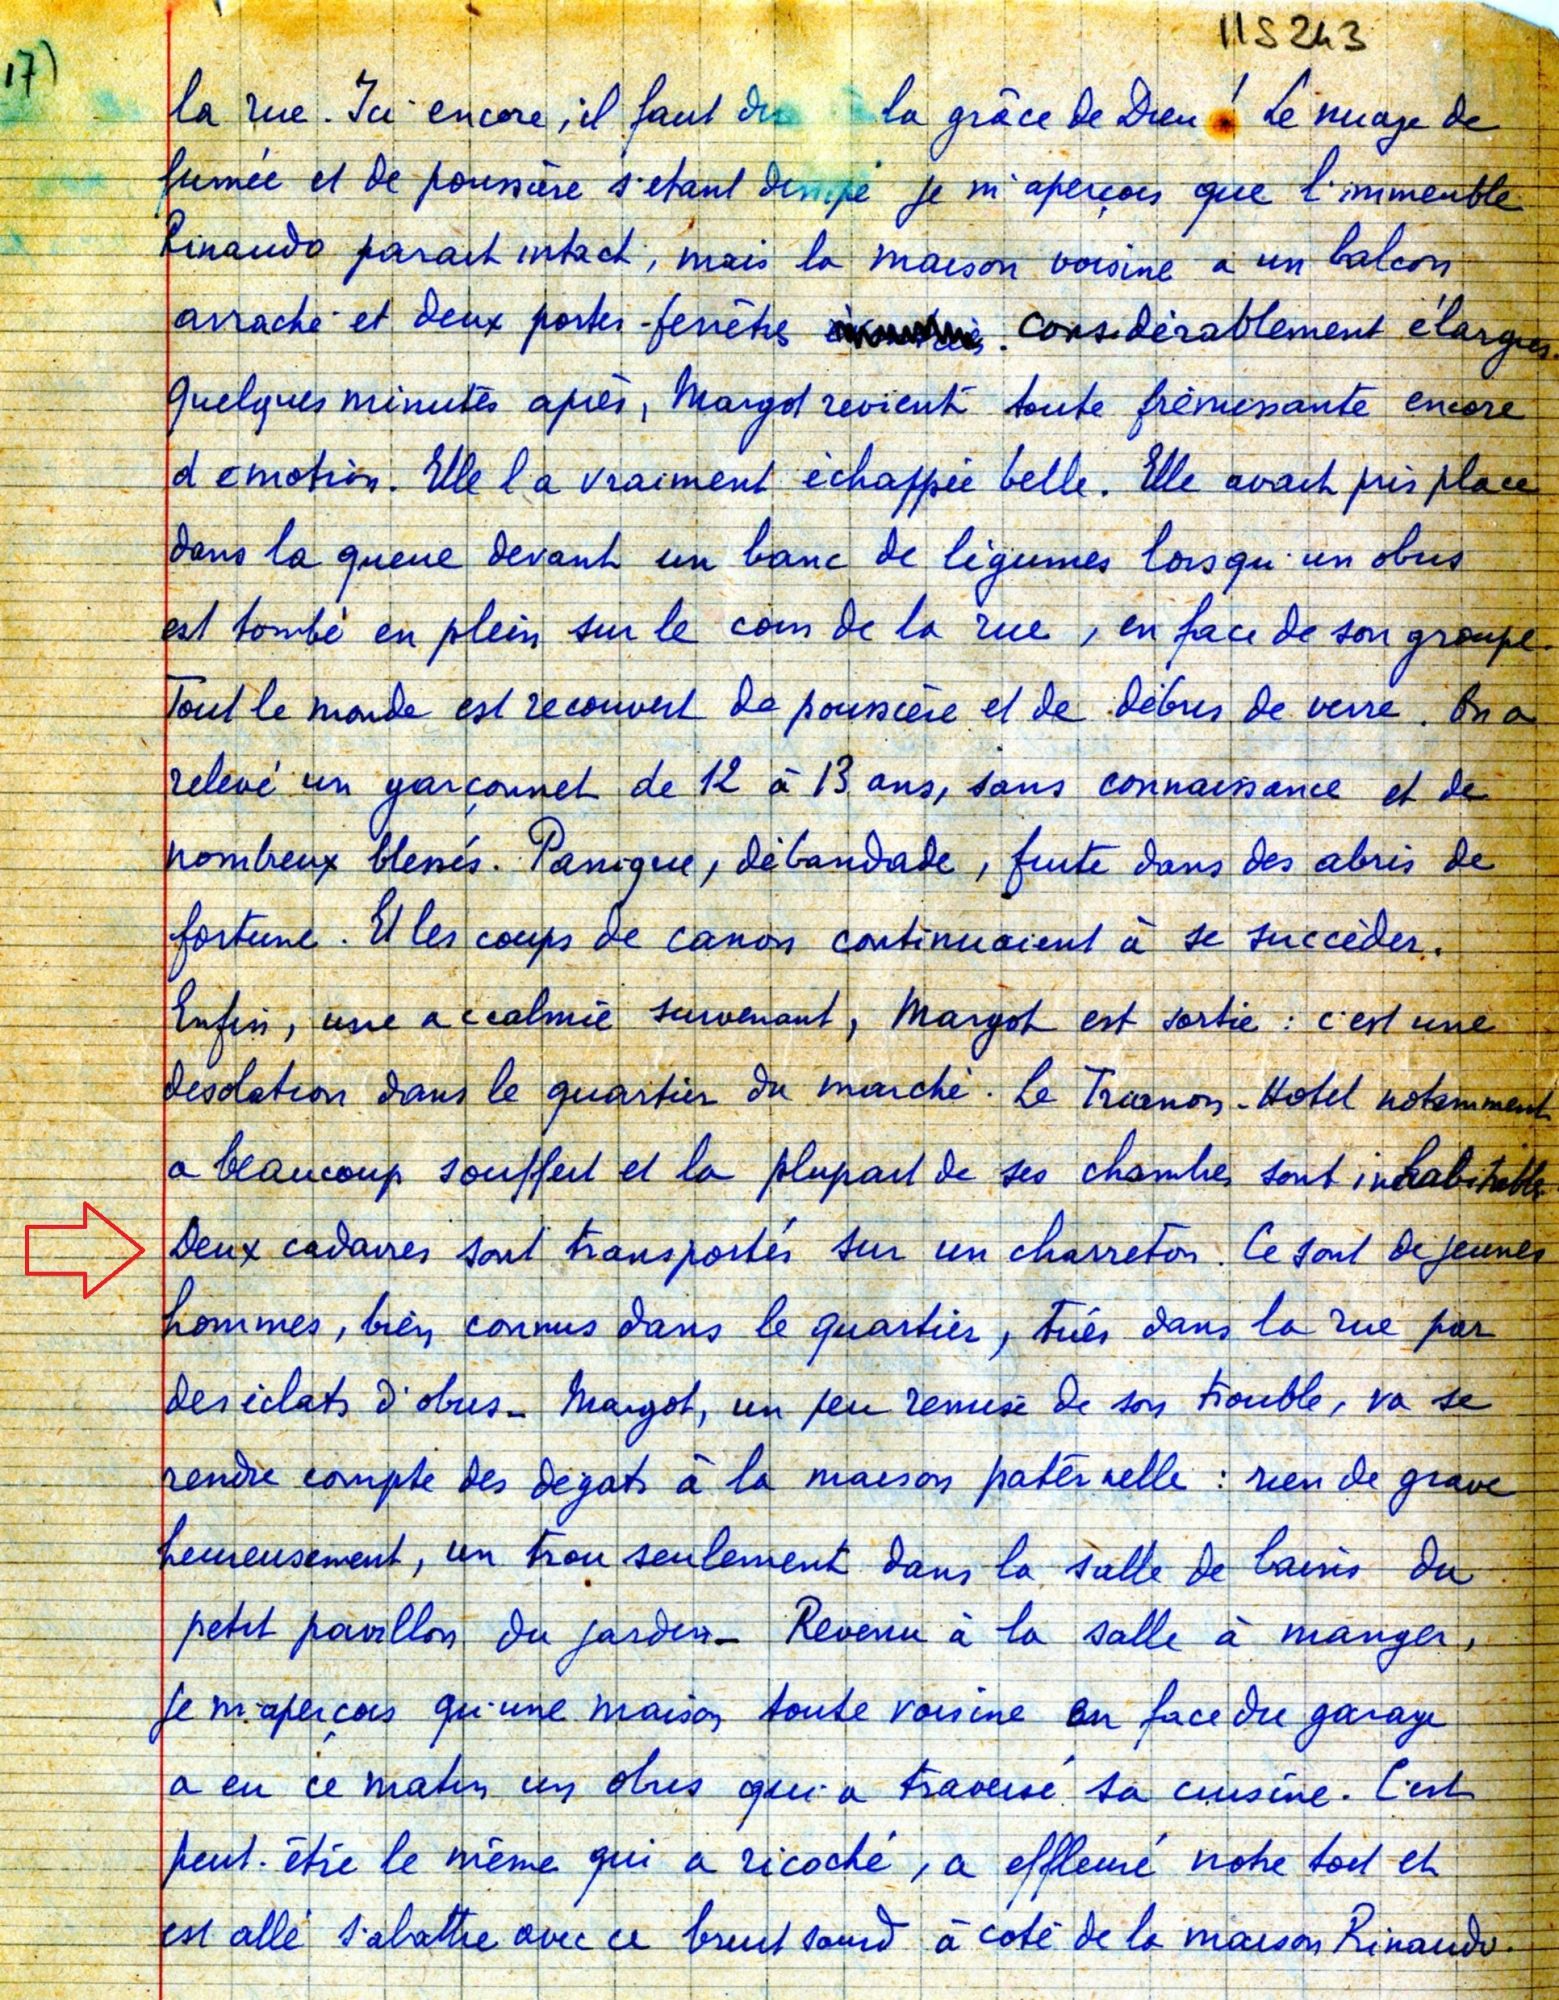 11S243
17)
la rue. Ici encore, il faut la grâce de Dieu ! Le nuage de
fumée et de poussière s'etant dissipé je m'aperçois que l'immeuble
Rinaudo parait intact, mais la maison voisine a un balcon
arraché et deux portes-fenêtres considérablement élargies.
Quelques minutes après, Margot revient toute frémissante encore
d'emotion. Elle l'a vraiment échappée belle. Elle avait pris place
dans la queue devant un banc de légumes lorsqu'un obus
est tombé en plein sur le coin de la rue, en face de son groupe.
Tout le monde est recouvert de poussière et de débris de verre. On a
relevé un garçonnet de 12 à 13 ans, sans connaissance et de
nombreux blessés. Panique, débandade, fuite dans des abris de
fortune. Et les coups de canon continuaient à se succéder.
Enfin, une accalmie survenant, Margot est sortie : c'est une
desolation dans le quartier du marché. Le Trianon-Hotel notamment
a beaucoup souffert et la plupart de ses chambres sont inhabitables
Deux cadavres sont transportés sur un charreton. Ce sont de jeunes
hommes, bien connus dans le quartier, tués dans la rue par
des éclats d'obus_ Margot, un peu remise de son trouble, va se
rendre compte des dégats à la maison paternelle : rien de grave
heureusement, un trou seulement dans la salle de bains du
petit pavillon du jardin_ Revenu à la salle à manger,
je m'aperçois qu'une maison toute voisine en face du garage
a eu ce matin un obus qui a traversé sa cuisine. C'est
peut-être le même qui a ricoché, a effleuré notre toit et
est allé s'abattre avec ce bruit sourd à coté de la maison Rinaudo.